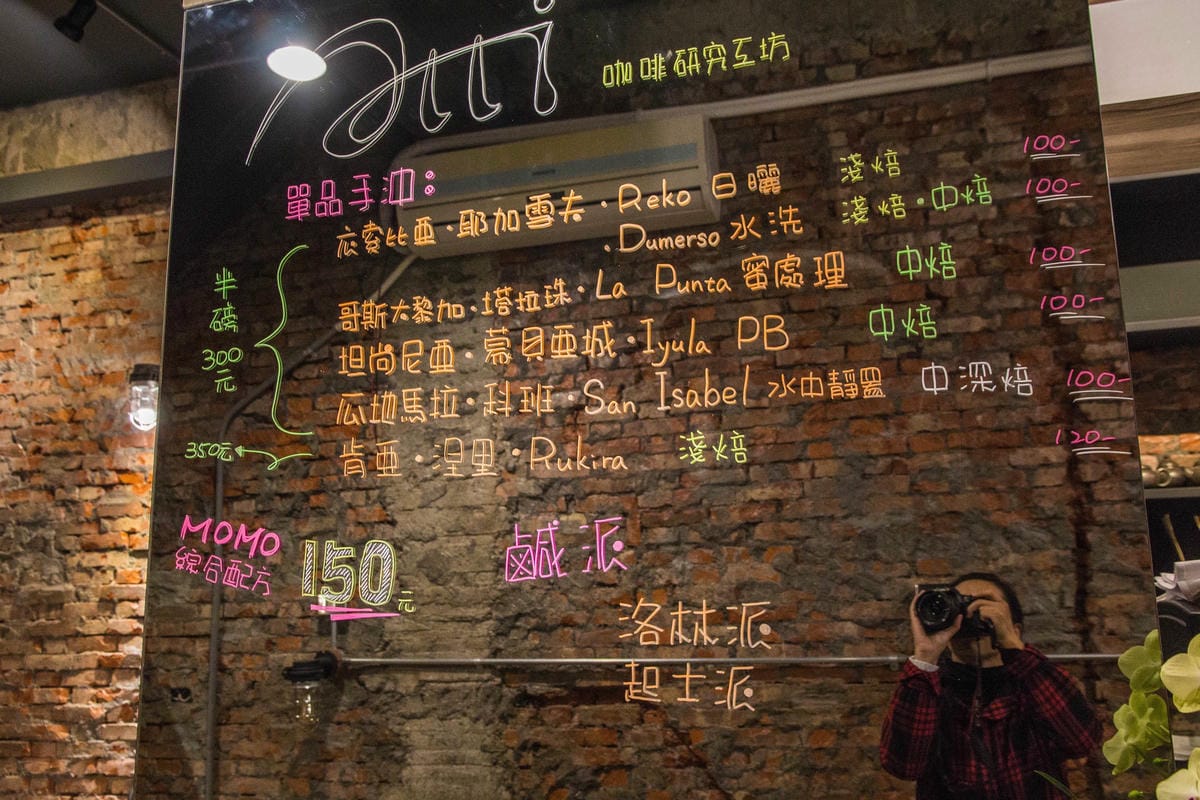 咖啡研究工坊
單品手沖：
衣索比亞·耶加雪夫·Reko 日曬 淺焙 100-
·Dumerso 水洗 淺焙·中焙 100-
哥斯大黎加·塔拉珠·La Punta 蜜處理 中焙 100-
坦尚尼亞·蒙貝亞城·Iyula PB 中焙 100-
瓜地馬拉·科班·San Isabel 水中靜置 中深焙 100-
肯亞·涅里·Rukira 淺焙 120-
半磅 300元
350元
MOMO
綜合配方
150元
鹹派
洛林派
起士派